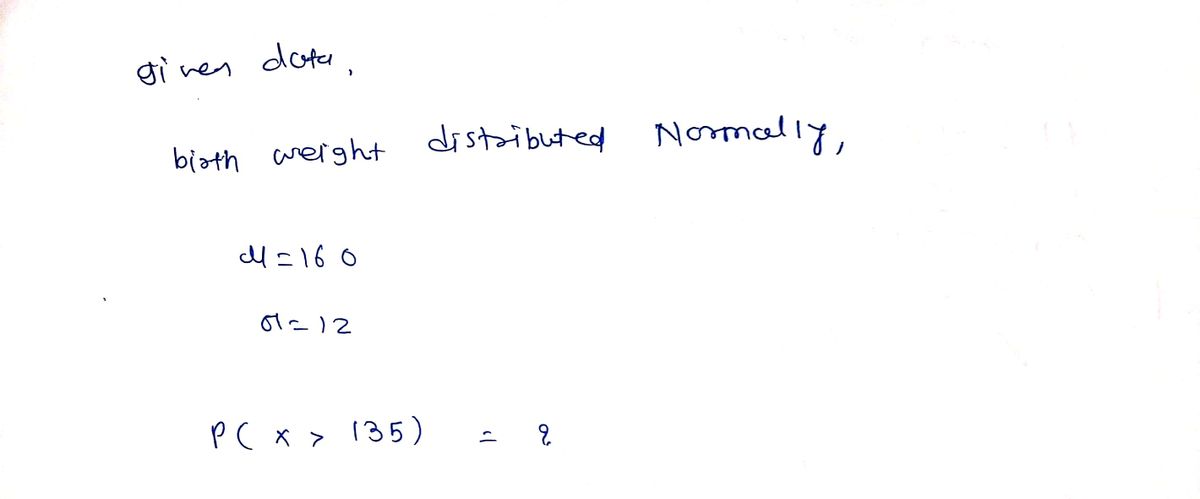 given data,
birth weight distributed Normally,
μ = 160
σ = 12
P( x > 135) = ?